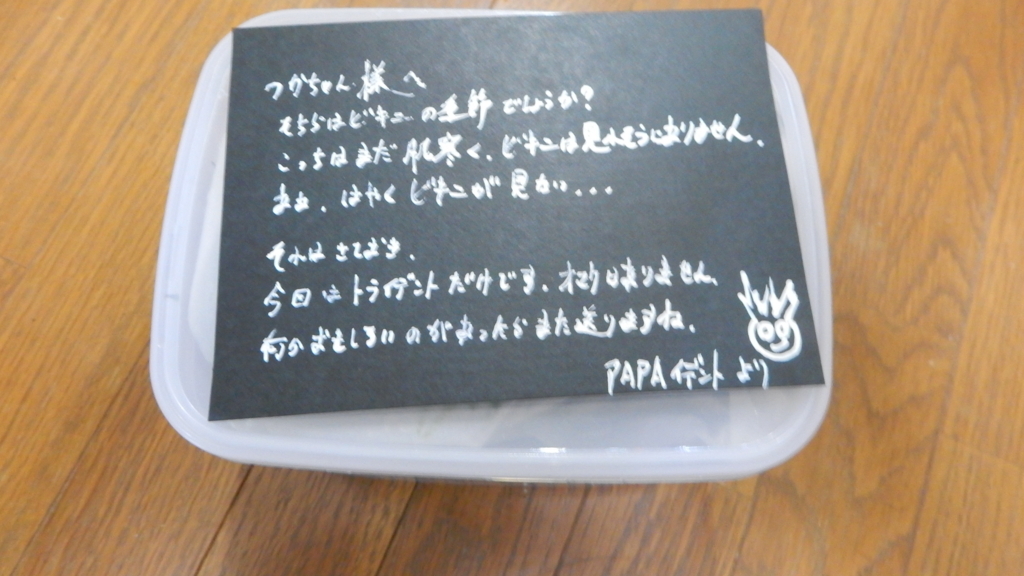 つかちゃん様へ
そちらはビキニの季節でしょうか?
こっちはまだ肌寒く、ビキニは見れそうにありません。
あぁ、はやくビキニが見たい...
それはさておき、
今日はトライデントだけです。オマケはありません。
何かおもしろいのがあったらまた送りますね。
PAPAイデントより